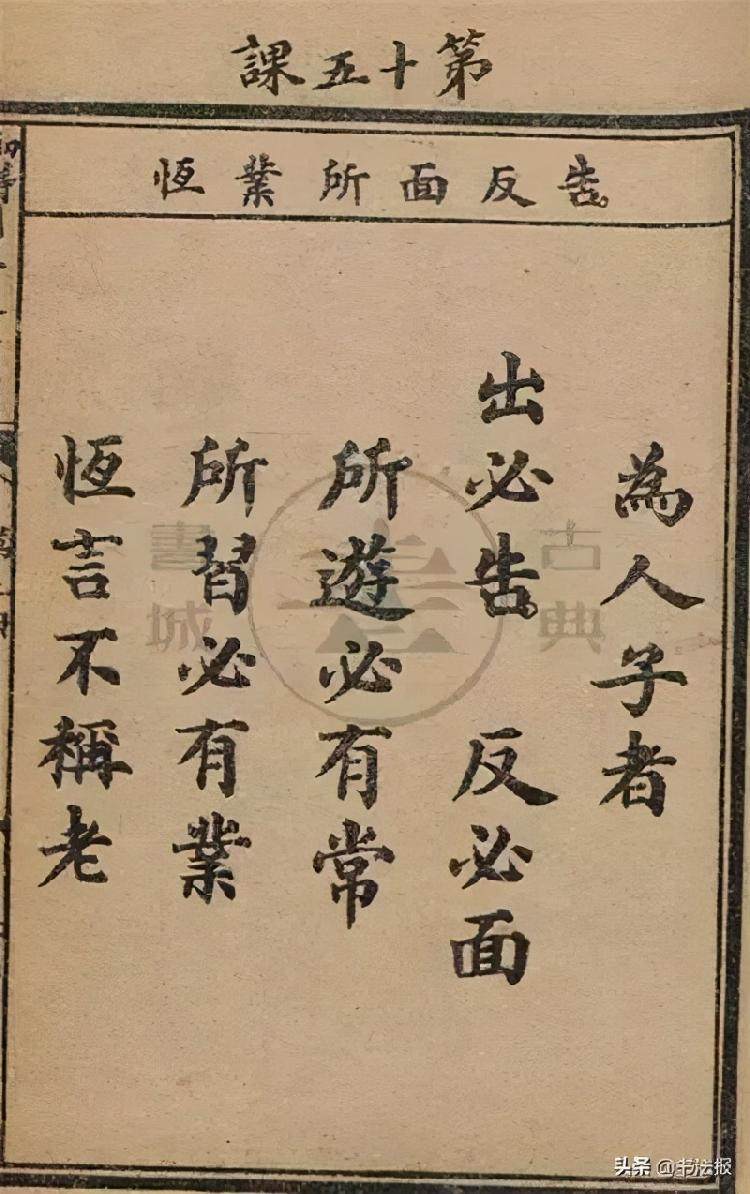 第十五課
告反面所業恆
為人子者
出必告 反必面
所遊必有常
所習必有業
恆言不稱老
古典書城
头条 @书法报